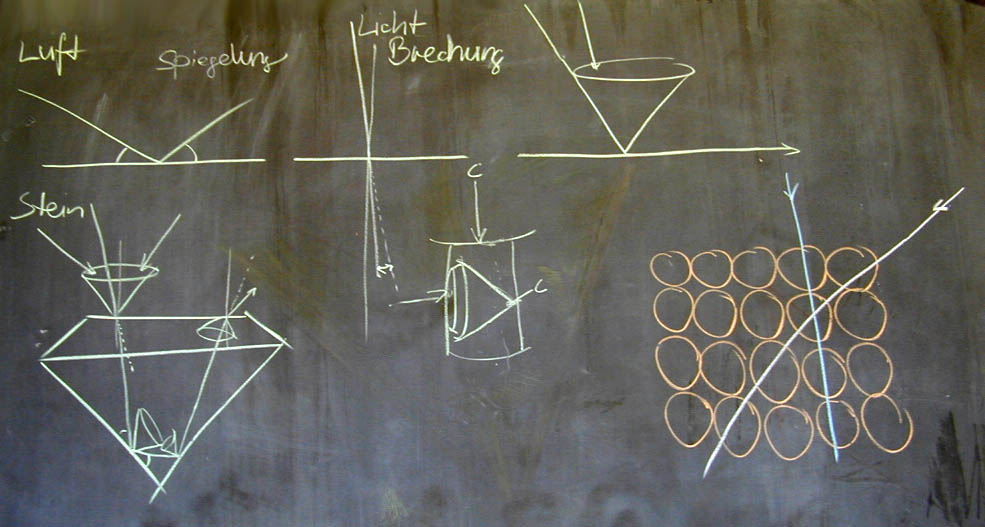 Luft
Spiegelung
Licht
Brechung
Stein
C
C